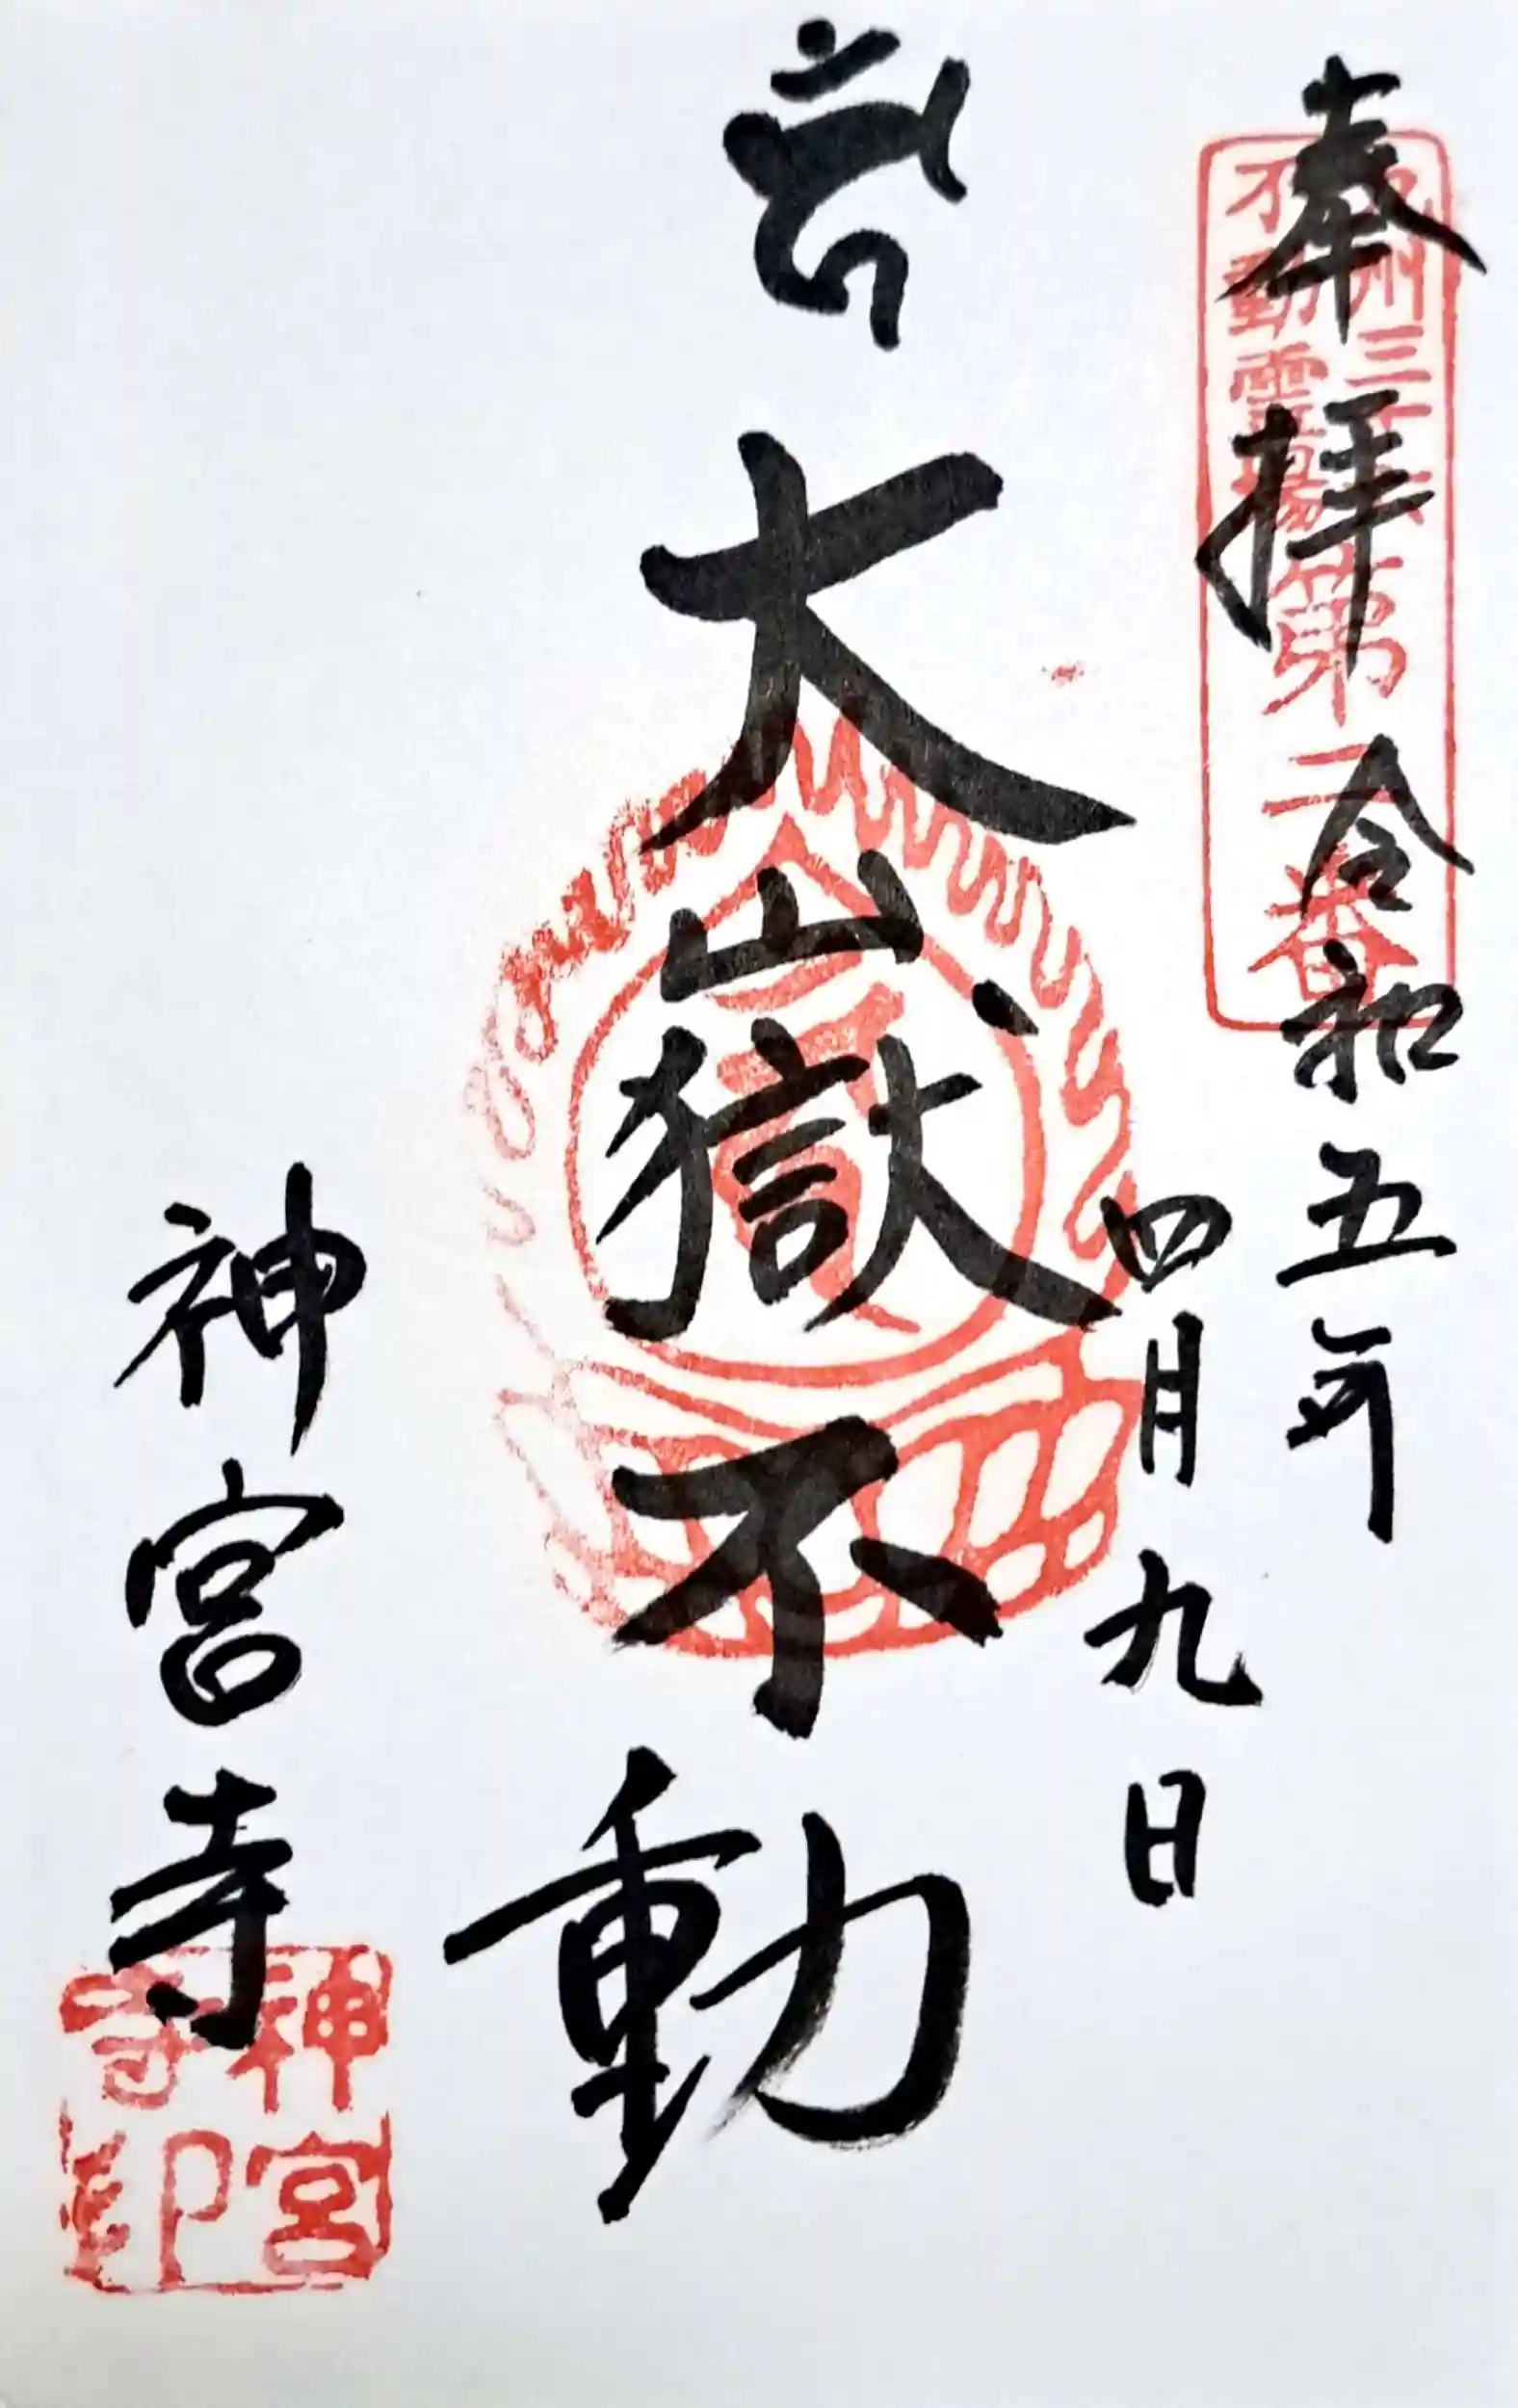 奉拝
令和五年
四月九日
大嶽不動
神宮寺
州三十六
不動霊場
第二番
神宮
寺印